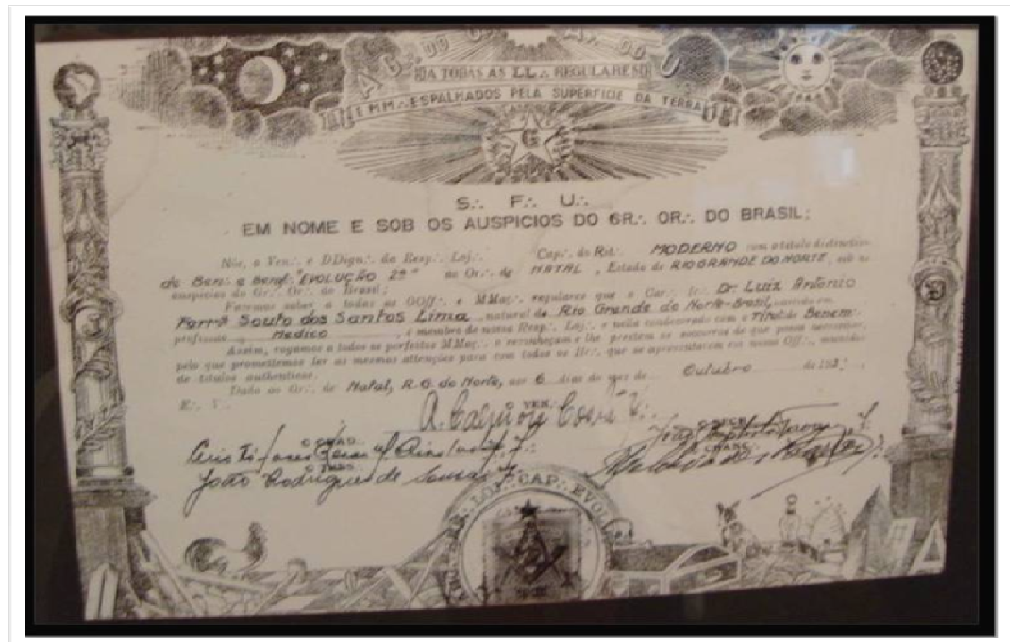 A.. G.. D.. G.. A.. D.. U..
A TODAS AS LL∴ REGULARES
E M.M∴ ESPALHADOS PELA SUPERFICIE DA TERRA
G
S∴ F∴ U∴
EM NOME E SOB OS AUSPICIOS DO GR∴ OR∴ DO BRASIL;
Nós, o Ven∴ e DDign∴ da Resp∴ Loj∴ Cap∴ do Rit∴ MODERNO com o titulo distinctivo
de Ben∴ e Benf∴ "EVOLUÇÃO 2ª" ao Or∴ de NATAL, Estado do RIO GRANDE DO NORTE, sob os
auspicios do Gr∴ Or∴ do Brasil;
Fazemos saber a todas as GOff∴ e MMaç∴ regulares que o Car∴ Ir∴ Dr Luiz Antonio
Ferrª Souto dos Santos Lima natural do Rio Grande do Norte-Brasil,
profissão Medico, é membro de nossa Resp∴ Loj∴ e nella condecorado com o Tit∴ de Benem∴
Assim, rogamos a todos os perfeitos MMaç∴ o reconheçam e lhe prestem os soccorros de que possa necessitar,
pelo que promettemos ter as mesmas attenções para com todos os IIr∴ que se apresentarem em nossa Off∴ munidos
de titulos authenticos.
Dado ao Or∴ de Natal, R. G. do Norte, aos 6 dias do mez de Outubro de 193
E∴ V∴
O VEN∴
O ORAD∴
O SECR∴
O THES∴
O CHANC∴
João Rodrigues de Souza
LOJ∴ CAP∴ EVOL